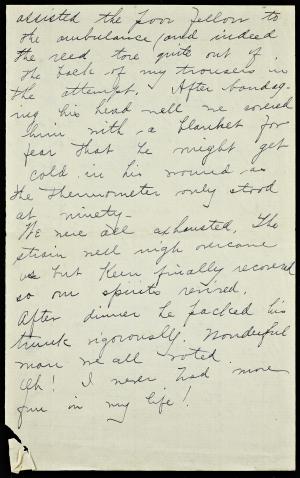 assisted the poor fellow to
the ambulance and indeed
the reed tore quite out of
the back of my trousers in
the attempt. After bandag-
ing his head well we covered
him with a blanket for
fear that he might get
cold in his wound as
the thermometer only stood
at ninety-
We were all exhausted. The
strain well nigh overcame
us but Keen finally recovered
so our spirits revived.
After dinner he packed his
trunk vigorously. Wonderful
man we all voted.
Oh! I never had more
fun in my life!